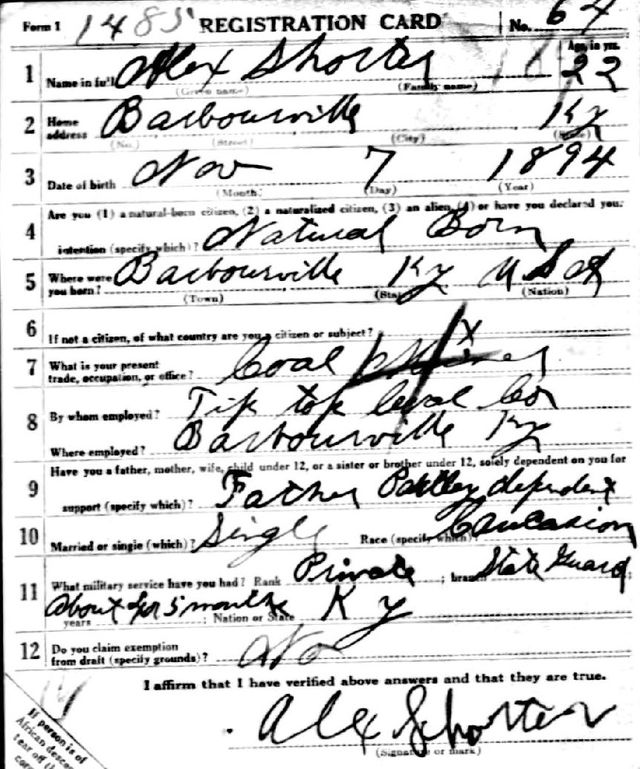 Form 1 1485 REGISTRATION CARD No. 64
1 Name in full Alex Shorter Age, in yrs. 22
(Given name) (Family name)
2 Home address Barbourville Ky
(No.) (Street) (City) (State)
3 Date of birth Nov 7 1894
(Month) (Day) (Year)
4 Are you (1) a natural-born citizen, (2) a naturalized citizen, (3) an alien, (4) or have you declared your
intention (specify which)? Natural Born
5 Where were you born? Barbourville Ky USA
(Town) (State) (Nation)
6 If not a citizen, of what country are you a citizen or subject? X
7 What is your present trade, occupation, or office? Coal Miner
8 By whom employed? Tip top Coal Co
Where employed? Barbourville Ky
9 Have you a father, mother, wife, child under 12, or a sister or brother under 12, solely dependent on you for
support (specify which)? Father Partley dependent
10 Married or single (which)? Single Race (specify which)? Caucasion
11 What military service have you had? Rank Private ; branch State Guard
About 5 months
years ; Nation or State Ky
12 Do you claim exemption from draft (specify grounds)? No
I affirm that I have verified above answers and that they are true.
Alex Shorter
(Signature or mark)
If person is of
African descent
tear off